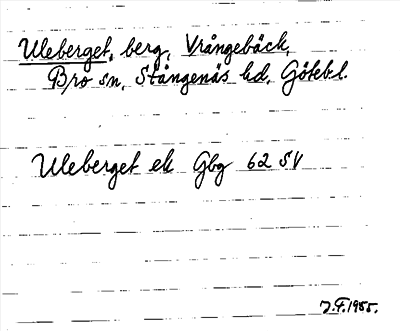 Uleberget, berg, Vrångebäck,
Bro sn, Stångenäs hd, Götebl.
Uleberget ek Gbg 62 SV
J.F. 1955.